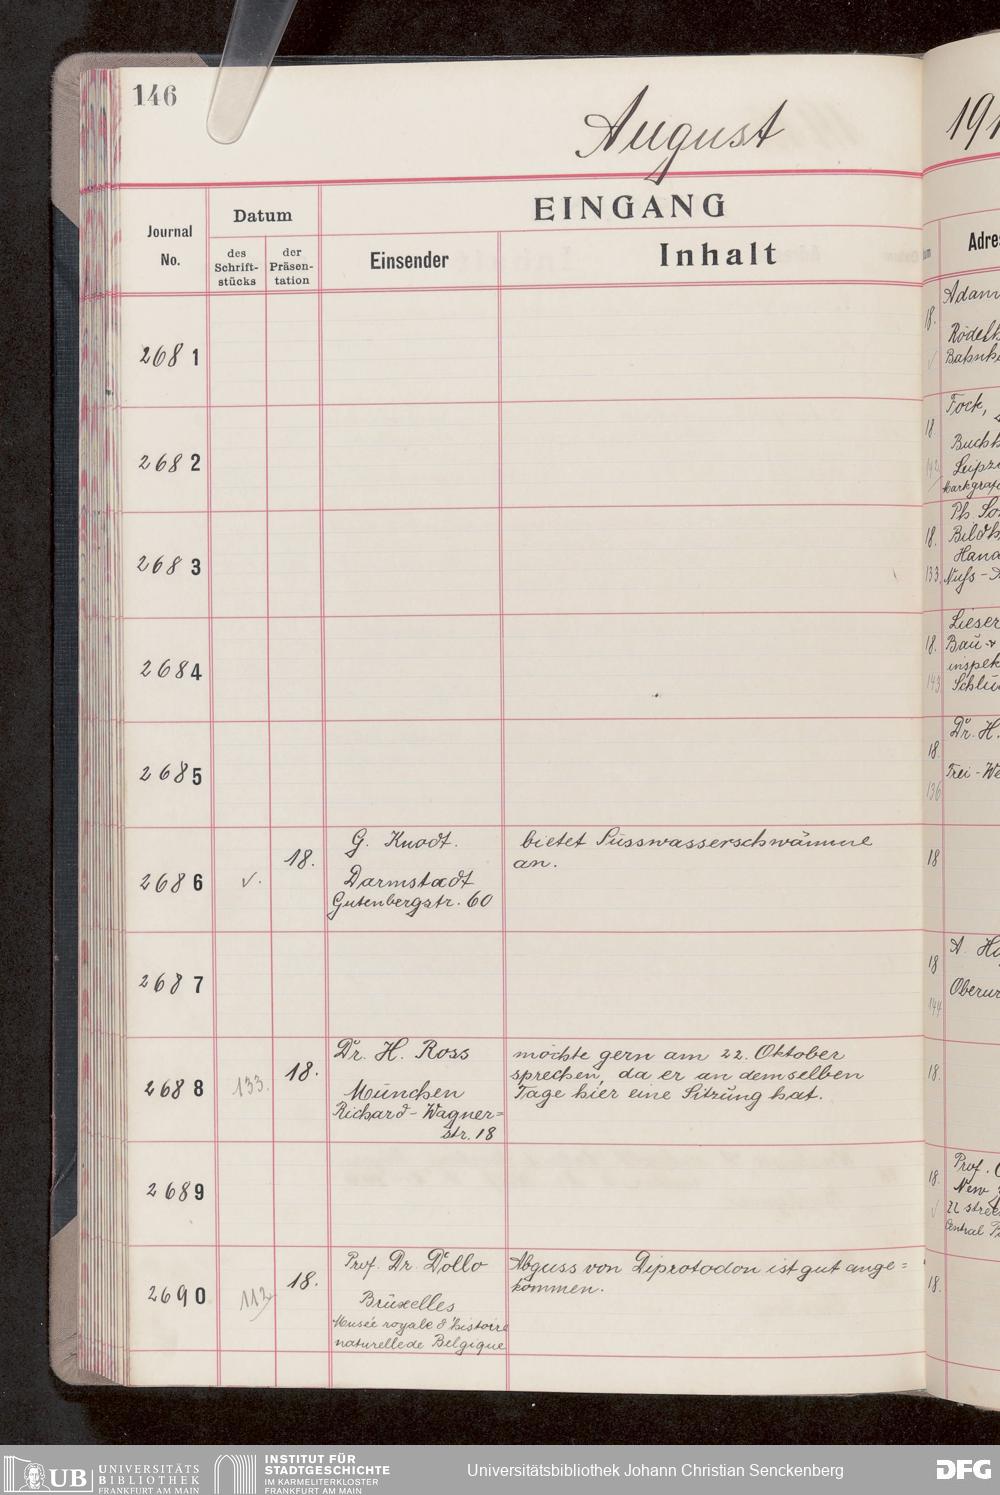 146
August
191
Journal
No.
Datum
des
Schrift-
stücks
der
Präsen-
tation
EINGANG
Einsender
Inhalt
Adres
2681
2682
2683
2684
2685
2686
√.
18.
G. Knodt.
Darmstadt
Gutenbergstr. 60
bietet Süsswasserschwämme
an.
2687
2688
133.
18.
Dr. H. Ross
München
Richard-Wagner=
str. 18
möchte gern am 22. Oktober
sprechen, da er an demselben
Tage hier eine Sitzung hat.
2689
2690
112
18.
Prof. Dr. Dollo
Bruxelles
Musée royale d'histoire
naturelle de Belgique
Abguss von Diprotodon ist gut ange=
kommen.
18.
Rödelh
Bahnh
Fock,
18.
Buchh
Leipzi
Markgraf
18.
Bildh
Hana
133.
Lieser
18.
Bau-
inspek
143
Schlü
Dr. H.
18.
Frei-We
136
18
18
Oberur
144
18.
Prof.
18.
New
√
Central
18.
UB UNIVERSITÄTS
BIBLIOTHEK
FRANKFURT AM MAIN
INSTITUT FÜR
STADTGESCHICHTE
IM KARMELITERKLOSTER
FRANKFURT AM MAIN
Universitätsbibliothek Johann Christian Senckenberg
DFG